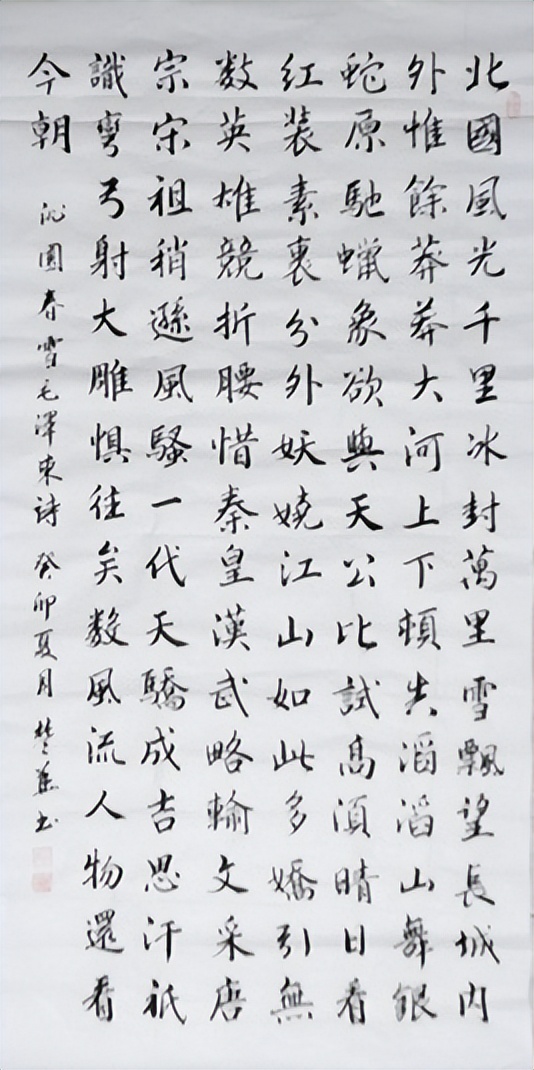 北國風光千里冰封萬里雪飄望長城内
外惟餘莽莽大河上下頓失滔滔山舞銀
蛇原馳蠟象欲與天公比試高須晴日看
红装素裹分外妖娆江山如此多嬌引無
数英雄競折腰惜秦皇漢武略輸文采唐
宗宋祖稍遜風騷一代天驕成吉思汗祇
識彎弓射大雕惧往矣数風流人物還看
今朝 沁園春雪毛澤東詩 癸卯夏月楚书